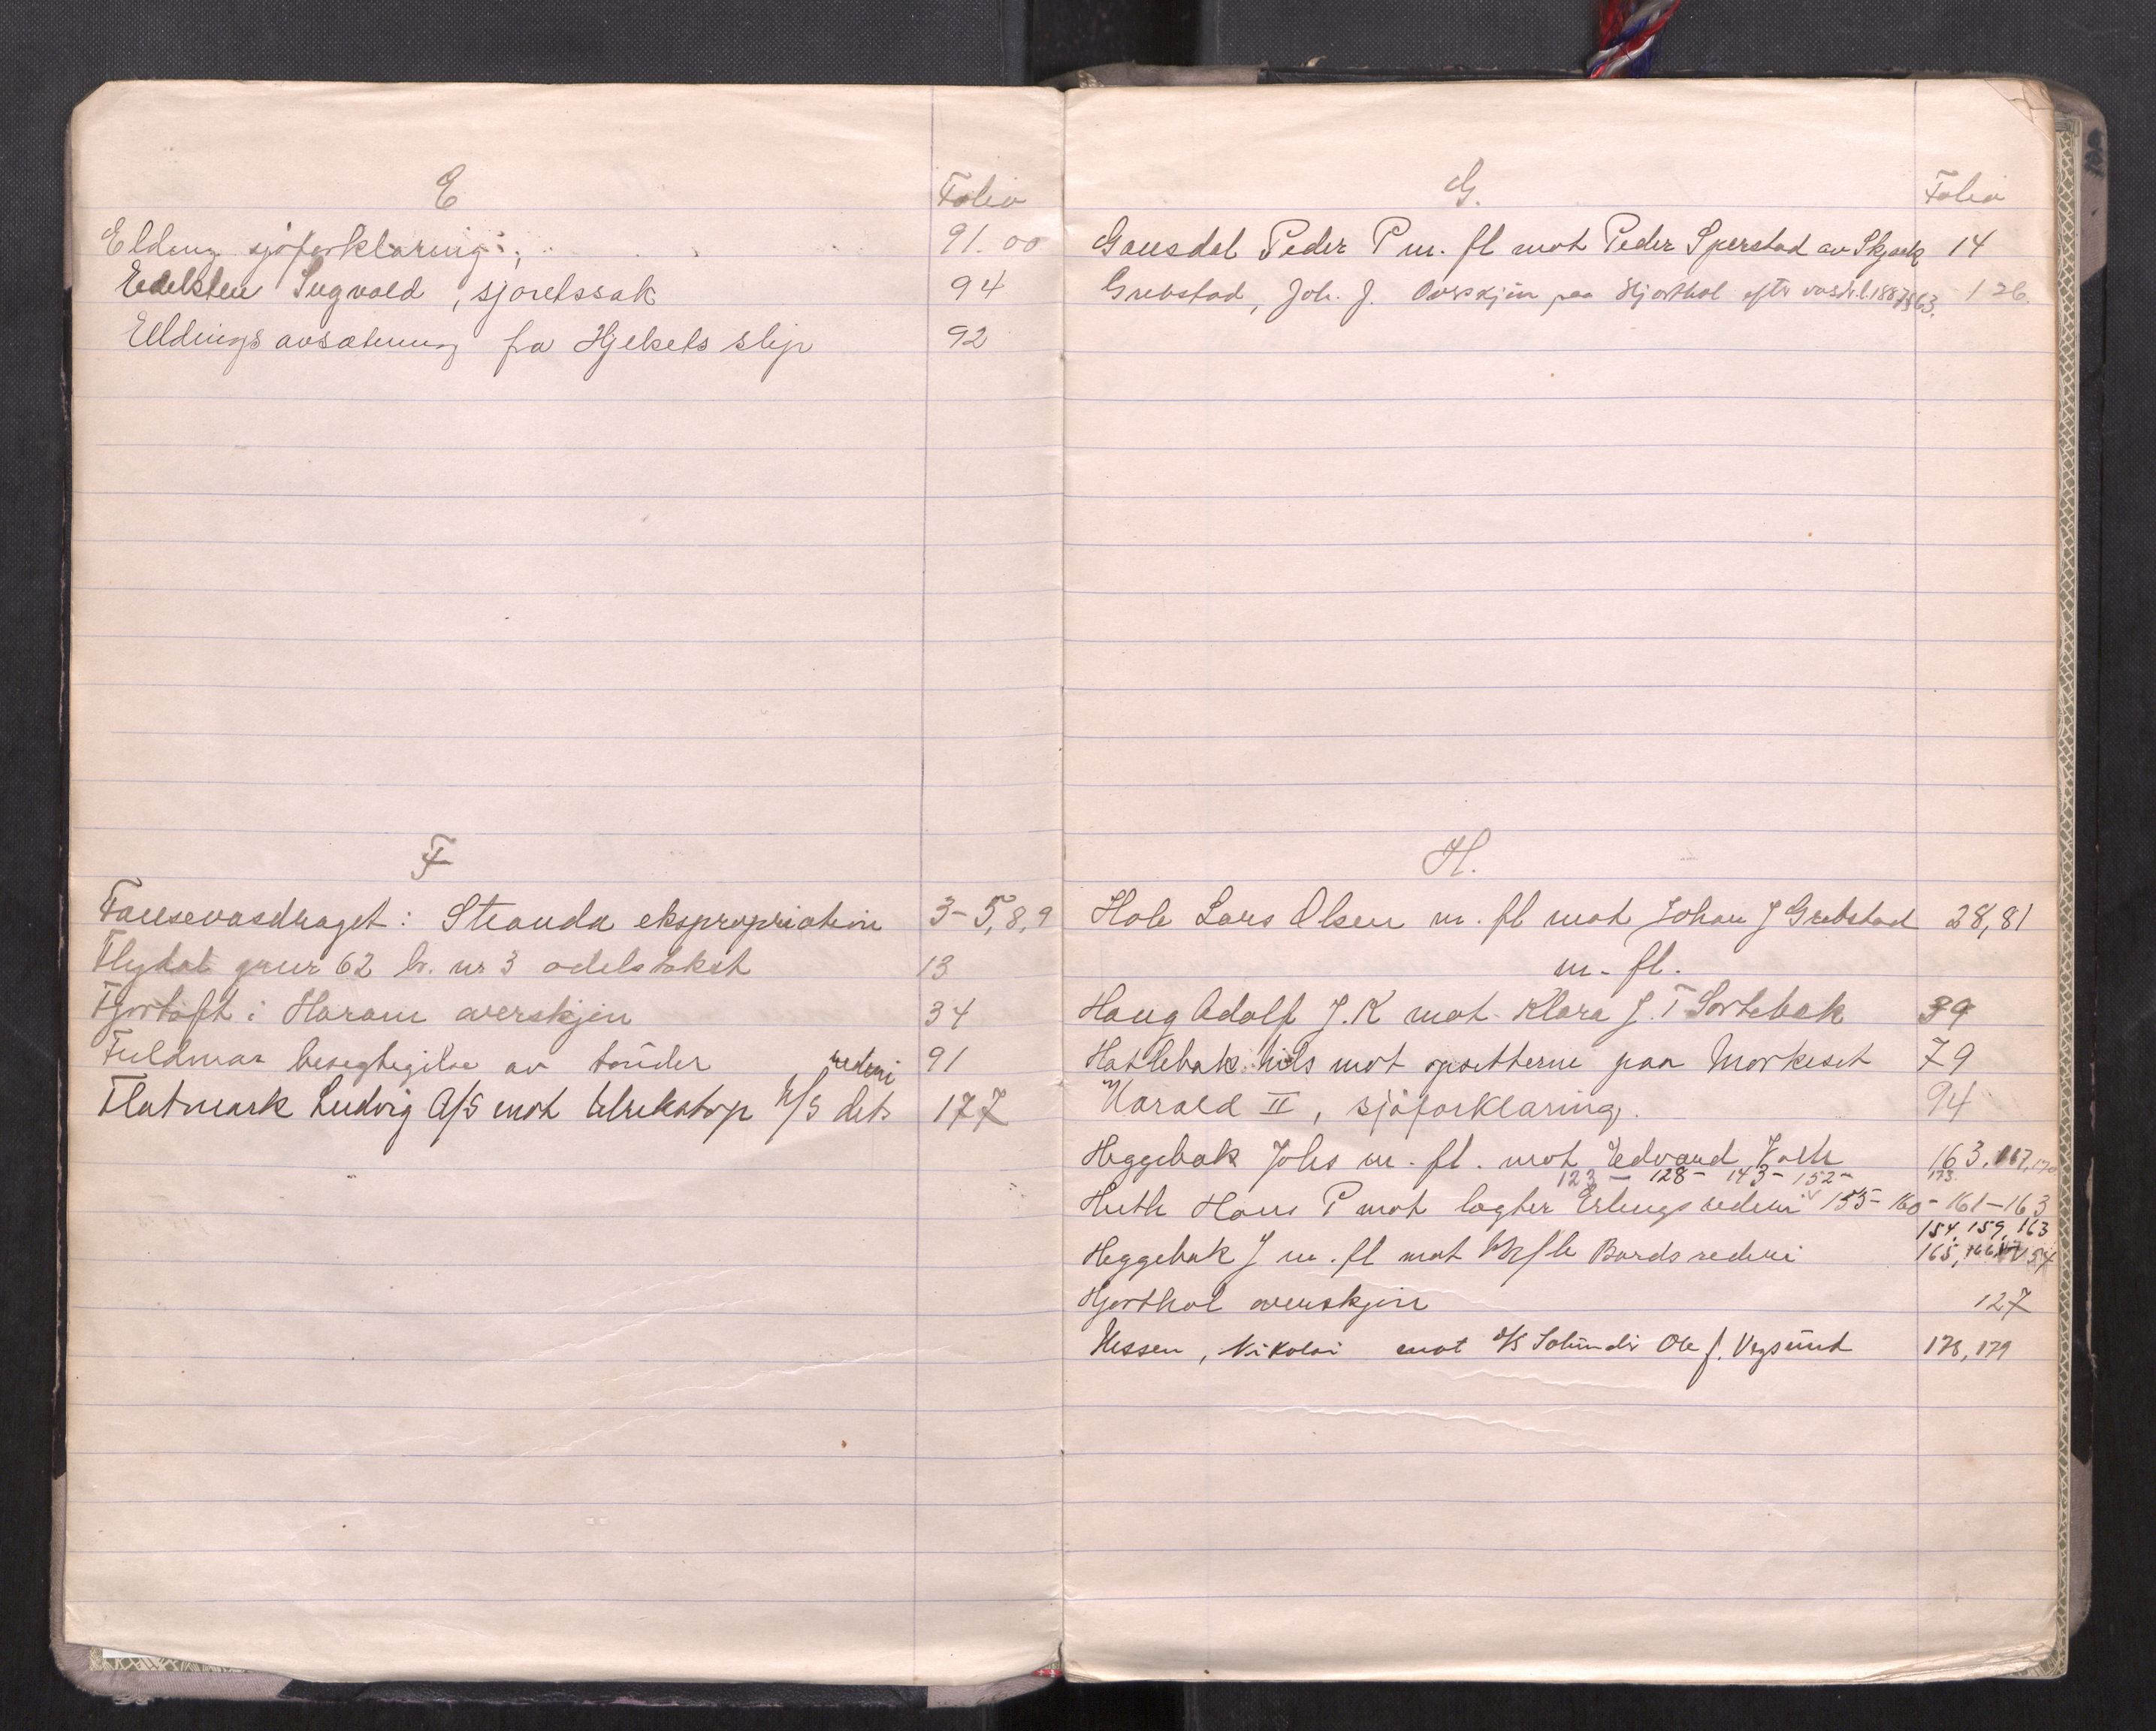 E
Folio
Elding sjøforklaring
91.00
Edelsten Sigvald, sjøretssak
94
Elldings avsætning fra Hjelsets slip
92
F
Fausevasdraget: Stranda ekspropriation
3-5, 8, 9
Flydal gnr 62 br. nr 3 odelstakst
13
Fjørtoft i Haram overskjøn
34
Fuldmar besigtigelse av tønder
91
rederi
Flatmark Ludvig A/S mot A/S dets
177
G.
Folio
Gausdal Peder P m. fl mot Peder Sperstad av Skjaak
14
Grebstad, Joh. J. Overskjøn paa Hjorthol efter vasdr.l. 1887 § 63.
126.
H.
Hole Lars Olsen m. fl mot Johan J Grebstad
28, 81
m. fl.
Haug Adolf J. K mot Klara J. T Sortebak
39
Hatlebak Nils mot opsitterne paa Morkeset
79
Harald II, sjøforklaring.
94
Heggebak Johs m. fl. mot Edvard
163, 167, 170
173
123 - 128 - 143 - 152 -
Huth Hans P mot lægter Erlings rederi 155 - 160 - 161 - 163
154, 159, 163
Heggebak J m. fl mot Bards rederi
165, 166
Hjorthol overskjøn
127
Hessen, Nikolai mot Ole J. Vegsund
178, 179